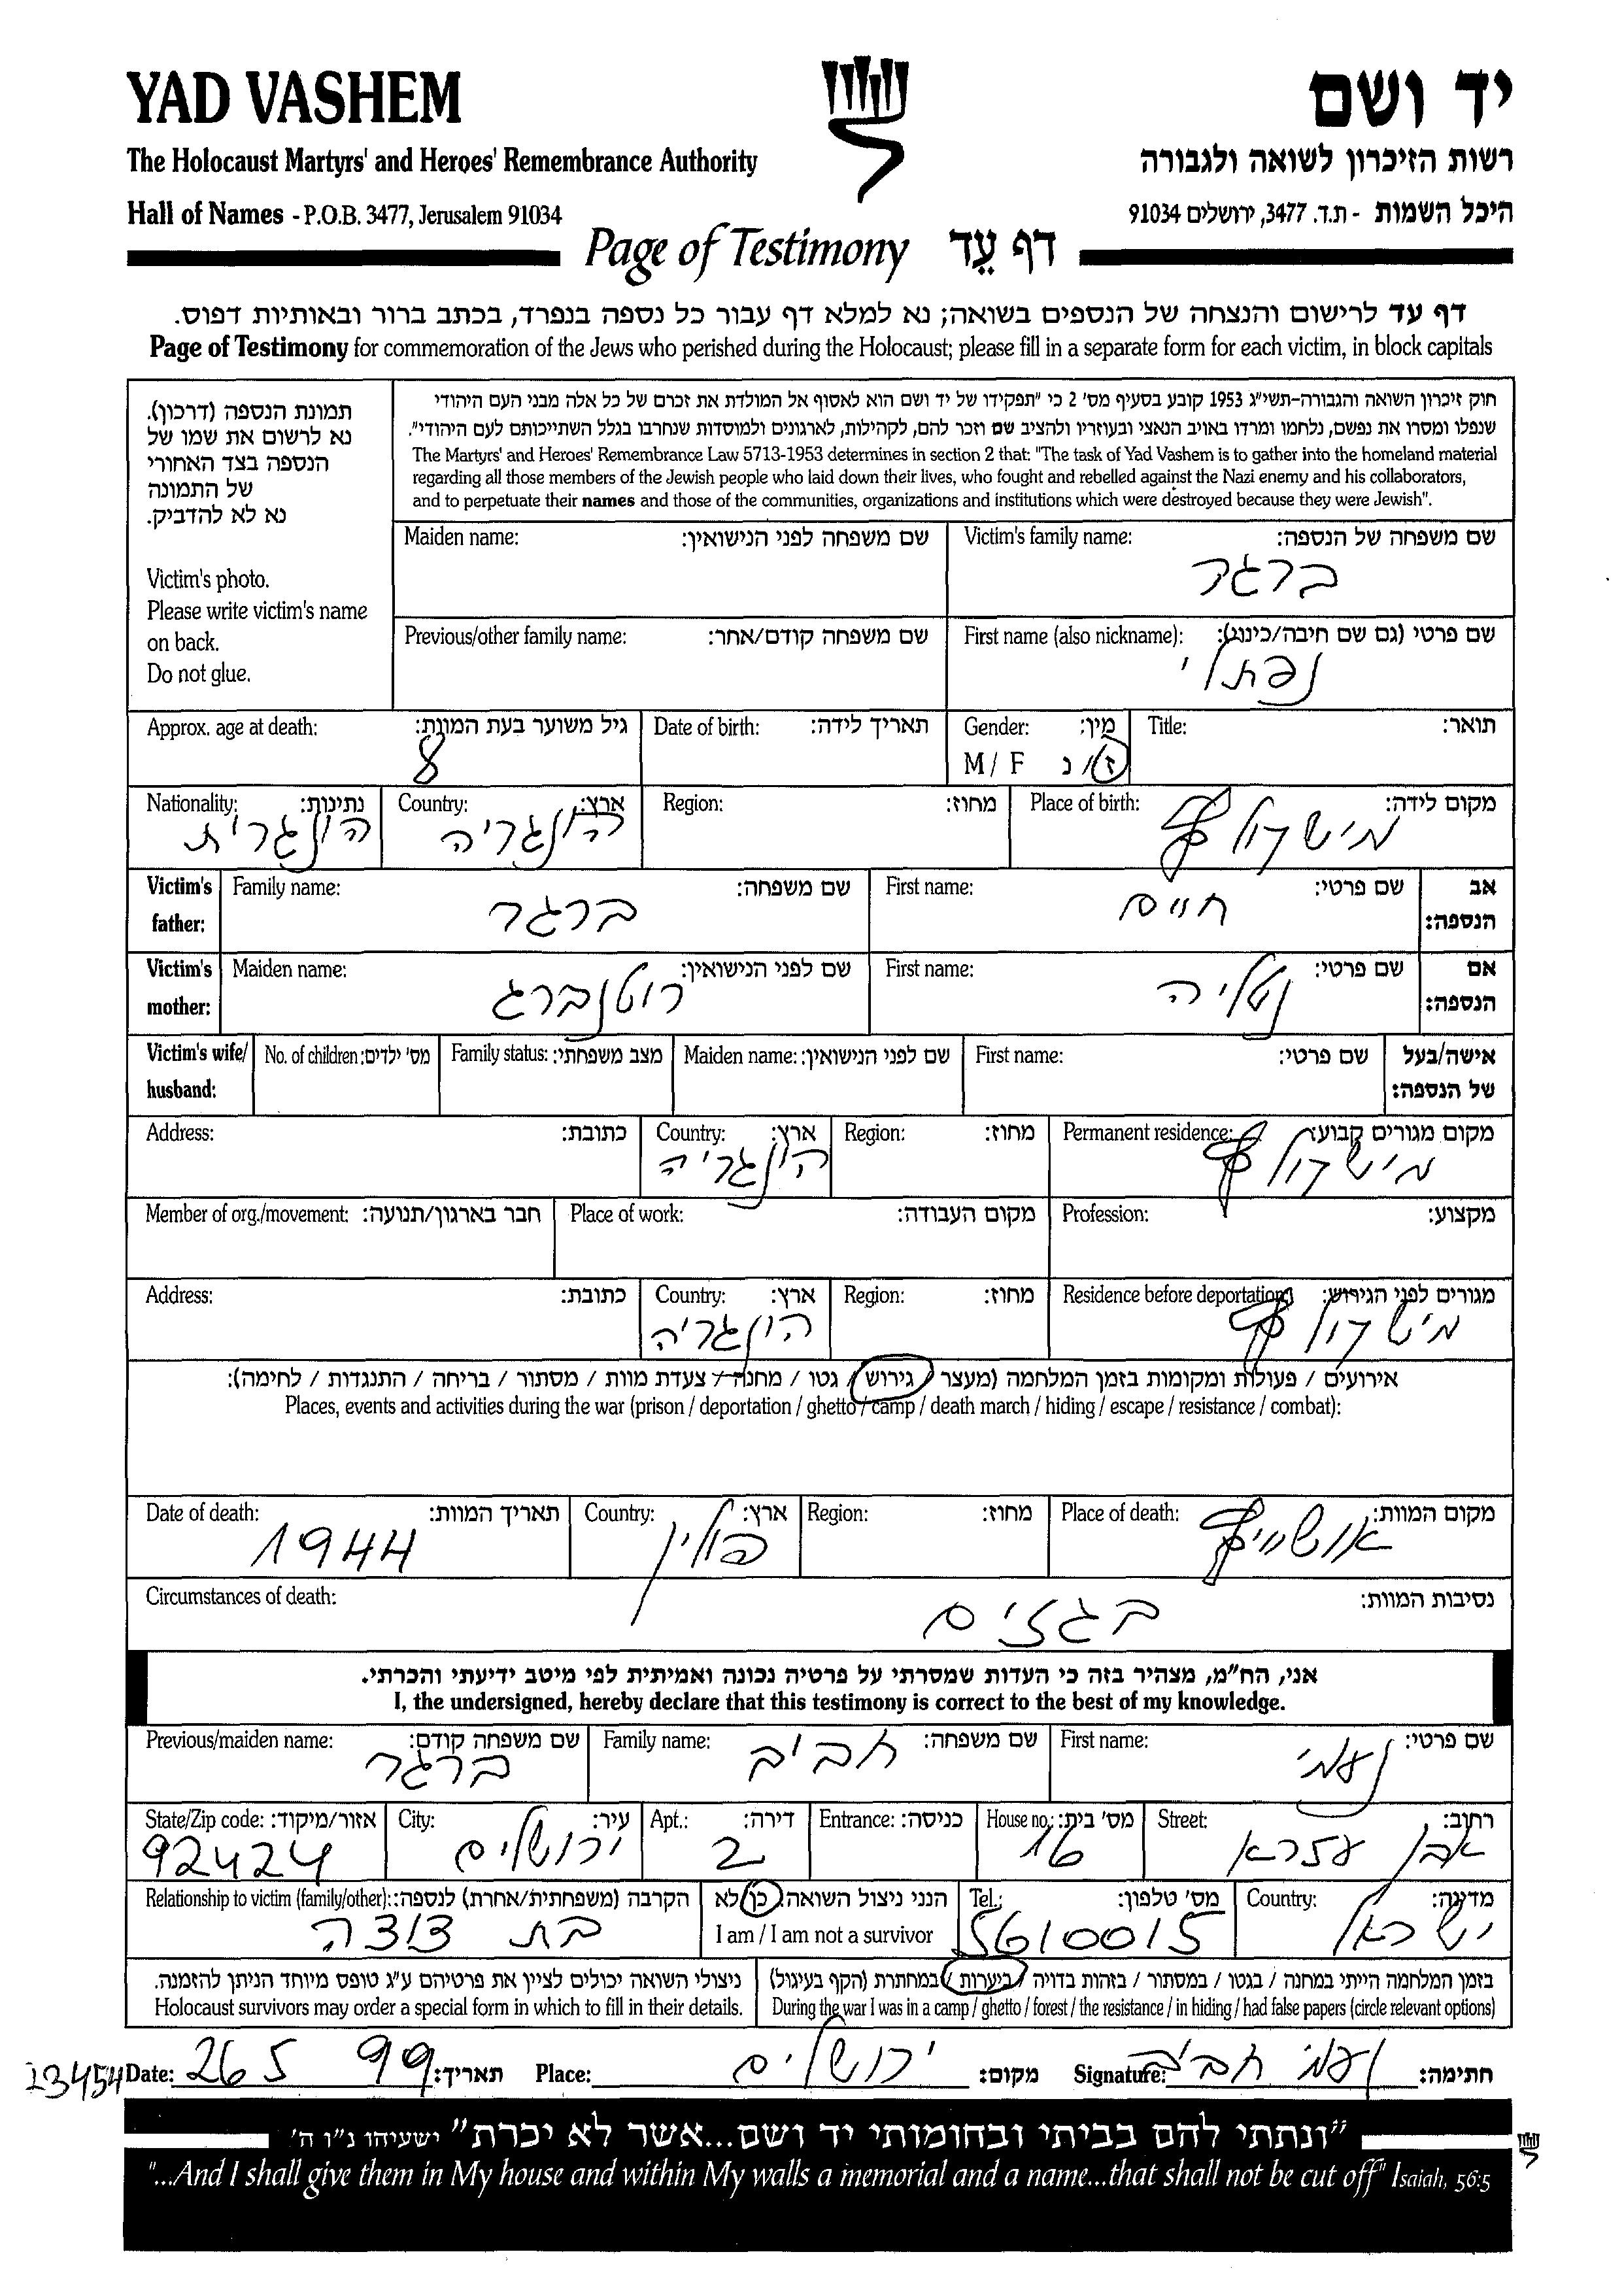 YAD VASHEM
יד ושם
The Holocaust Martyrs' and Heroes' Remembrance Authority
רשות הזיכרון לשואה ולגבורה
Hall of Names - P.O.B. 3477, Jerusalem 91034
היכל השמות - ת.ד. 3477, ירושלים 91034
Page of Testimony דף עֵד
דף עד לרישום והנצחה של הנספים בשואה; נא למלא דף עבור כל נספה בנפרד, בכתב ברור ובאותיות דפוס.
Page of Testimony for commemoration of the Jews who perished during the Holocaust; please fill in a separate form for each victim, in block capitals
תמונת הנספה (דרכון).
נא לרשום את שמו של
הנספה בצד האחורי
של התמונה
נא לא להדביק.
Victim's photo.
Please write victim's name
on back.
Do not glue.
חוק זיכרון השואה והגבורה-תשי"ג 1953 קובע בסעיף מס' 2 כי "תפקידו של יד ושם הוא לאסוף אל המולדת את זכרם של כל אלה מבני העם היהודי
שנפלו ומסרו את נפשם, נלחמו ומרדו באויב הנאצי ובעוזריו ולהציב שם וזכר להם, לקהילות, לארגונים ולמוסדות שנחרבו בגלל השתייכותם לעם היהודי".
The Martyrs' and Heroes' Remembrance Law 5713-1953 determines in section 2 that: "The task of Yad Vashem is to gather into the homeland material
regarding all those members of the Jewish people who laid down their lives, who fought and rebelled against the Nazi enemy and his collaborators,
and to perpetuate their names and those of the communities, organizations and institutions which were destroyed because they were Jewish".
Victim's family name: שם משפחה של הנספה:
ברגר
Maiden name: שם משפחה לפני הנישואין:
First name (also nickname): שם פרטי (גם שם חיבה/כינוי):
נפתלי
Previous/other family name: שם משפחה קודם/אחר:
Title: תואר:
Gender: מין:
M / F ז / נ
Date of birth: תאריך לידה:
Approx. age at death: גיל משוער בעת המוות:
8
Place of birth: מקום לידה:
מישקולץ
Region: מחוז:
Country: ארץ:
הונגריה
Nationality: נתינות:
הונגרית
Victim's father: אב הנספה:
First name: שם פרטי:
חיים
Family name: שם משפחה:
ברגר
Victim's mother: אם הנספה:
First name: שם פרטי:
נטליה
Maiden name: שם לפני הנישואין:
רוטנברג
Victim's wife/ husband: אישה/בעל של הנספה:
First name: שם פרטי:
Maiden name: שם לפני הנישואין:
Family status: מצב משפחתי:
No. of children: מס' ילדים:
Permanent residence: מקום מגורים קבוע:
מישקולץ
Region: מחוז:
Country: ארץ:
הונגריה
Address: כתובת:
Profession: מקצוע:
Place of work: מקום העבודה:
Member of org./movement: חבר בארגון/תנועה:
Residence before deportation: מגורים לפני הגירוש:
מישקולץ
Region: מחוז:
Country: ארץ:
הונגריה
Address: כתובת:
אירועים / פעולות ומקומות בזמן המלחמה (מעצר / גירוש / גטו / מחנה / צעדת מוות / מסתור / בריחה / התנגדות / לחימה):
Places, events and activities during the war (prison / deportation / ghetto / camp / death march / hiding / escape / resistance / combat):
Place of death: מקום המוות:
אושוויץ
Region: מחוז:
Country: ארץ:
פולין
Date of death: תאריך המוות:
1944
Circumstances of death: נסיבות המוות:
בגזים
אני, הח"מ, מצהיר בזה כי העדות שמסרתי על פרטיה נכונה ואמיתית לפי מיטב ידיעתי והכרתי.
I, the undersigned, hereby declare that this testimony is correct to the best of my knowledge.
First name: שם פרטי:
נעמי
Family name: שם משפחה:
חביב
Previous/maiden name: שם משפחה קודם:
ברגר
Street: רחוב:
אבן עזרא
House no.: מס' בית:
16
Entrance: כניסה:
Apt.: דירה:
2
City: עיר:
ירושלים
State/Zip code: אזור/מיקוד:
92424
Country: מדינה:
ישראל
Tel.: מס' טלפון:
5610015
הנני ניצול השואה: כן / לא
I am / I am not a survivor
Relationship to victim (family/other): הקרבה (משפחתית/אחרת) לנספה:
בת דודה
בזמן המלחמה הייתי במחנה / בגטו / במסתור / בזהות בדויה / ביערות / במחתרת (הקף בעיגול)
During the war I was in a camp / ghetto / forest / the resistance / in hiding / had false papers (circle relevant options)
ניצולי השואה יכולים לציין את פרטיהם ע"ג טופס מיוחד הניתן להזמנה.
Holocaust survivors may order a special form in which to fill in their details.
23454
Date: 26 5 99 תאריך:
Place: ירושלים מקום:
Signature: נעמי חביב חתימה:
"ונתתי להם בביתי ובחומותי יד ושם...אשר לא יכרת" ישעיהו נ"ו ה'
"...And I shall give them in My house and within My walls a memorial and a name...that shall not be cut off" Isaiah, 56:5